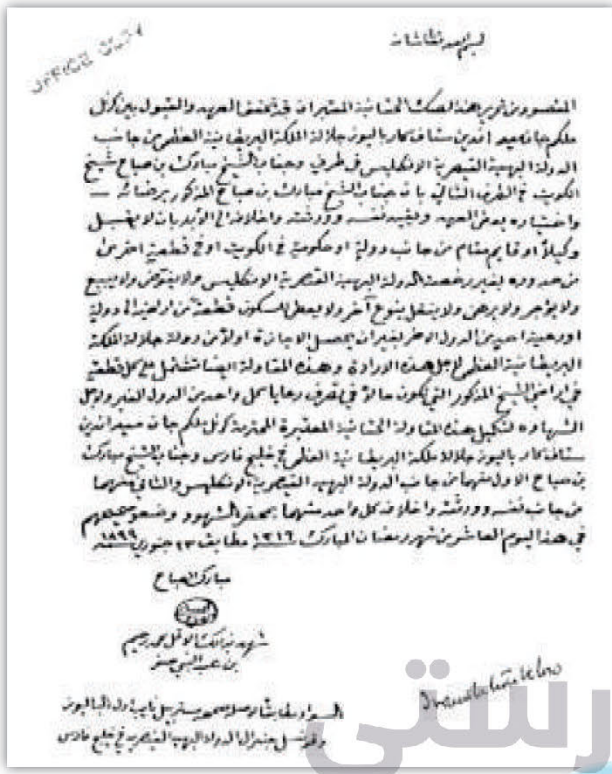 OFFICE COPY
بسم الله تعالى شانه
المقصود من تحرير هذه الصك الحقانية المشعرات قد تحقق العهد والقبول بين كرنل
ملكم جان ميد اندين ستاف كار باليوز جلالة الملكة البريطانية العظمى من جانب
الدولة البهية القيصرية الانكليس في طرف وجناب الشيخ مبارك بن صباح شيخ
الكويت في الطرف الثاني بان جناب الشيخ مبارك بن صباح المذكور برضائه
واختياره يعطي العهد ويقيد نفسه وورثته واخلافه الى الأبد بان لا يقبل
وكيلاً او قايم مقام من جانب دولة او حكومة في الكويت او في قطعة اخرى
من حدوده بغير رخصة الدولة البهية القيصرية الانكليس ولا يفوض ولا يبيع
ولا يؤجر ولا يرهن ولا ينقل بنوع آخر ولا يعطي للسكون قطعة من اراضيه الى دولة
او رعية احد من الدول الاخر بغير ان يحصل الاجازة اولاً من دولة جلالة الملكة
البريطانية العظمى لاجل هذه الارادة وهذه المقاولة ايضا تشتمل على كل قطعة
في اراضي الشيخ المذكور التي يكون حالاً في تصرف رعايا كل واحد من الدول الغير ولاجل
الشهاده لتكميل هذه المقاولة الحقانية المعتبرة المحترمة كرنل ملكم جان ميد اندين
ستاف كار باليوز جلالة ملكة البريطانية العظمى في خليج فارس وجناب الشيخ مبارك
بن صباح الاول منهما من جانب الدولة البهية القيصرية الانكليس والثاني منهما
من جانب نفسه وورثته واخلافه كل واحد منهما بمحضر الشهود وضعو صحيحهم
في هذا اليوم العاشر من شهر رمضان المبارك سنة ١٣١٦ مطابق ٢٣ جنوري سنة ١٨٩٩
مبارك الصباح
شهد بذالك الاقل محمد رحيم
بن عبد النبي صفر
السواد مطابق
وقونسل جنرال الدولة البهية القيصرية في خليج فارس
رستى